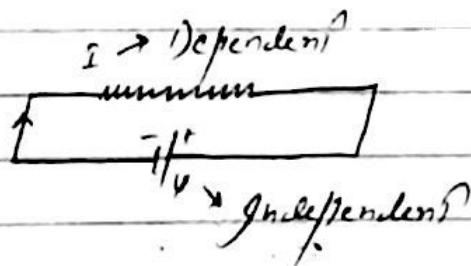 I → Dependent
- +
V ↘ Independent